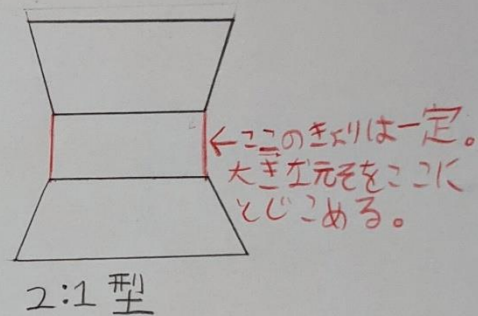 ←ここのきょりは一定。
大きな元そをここに
とじこめる。
2:1型